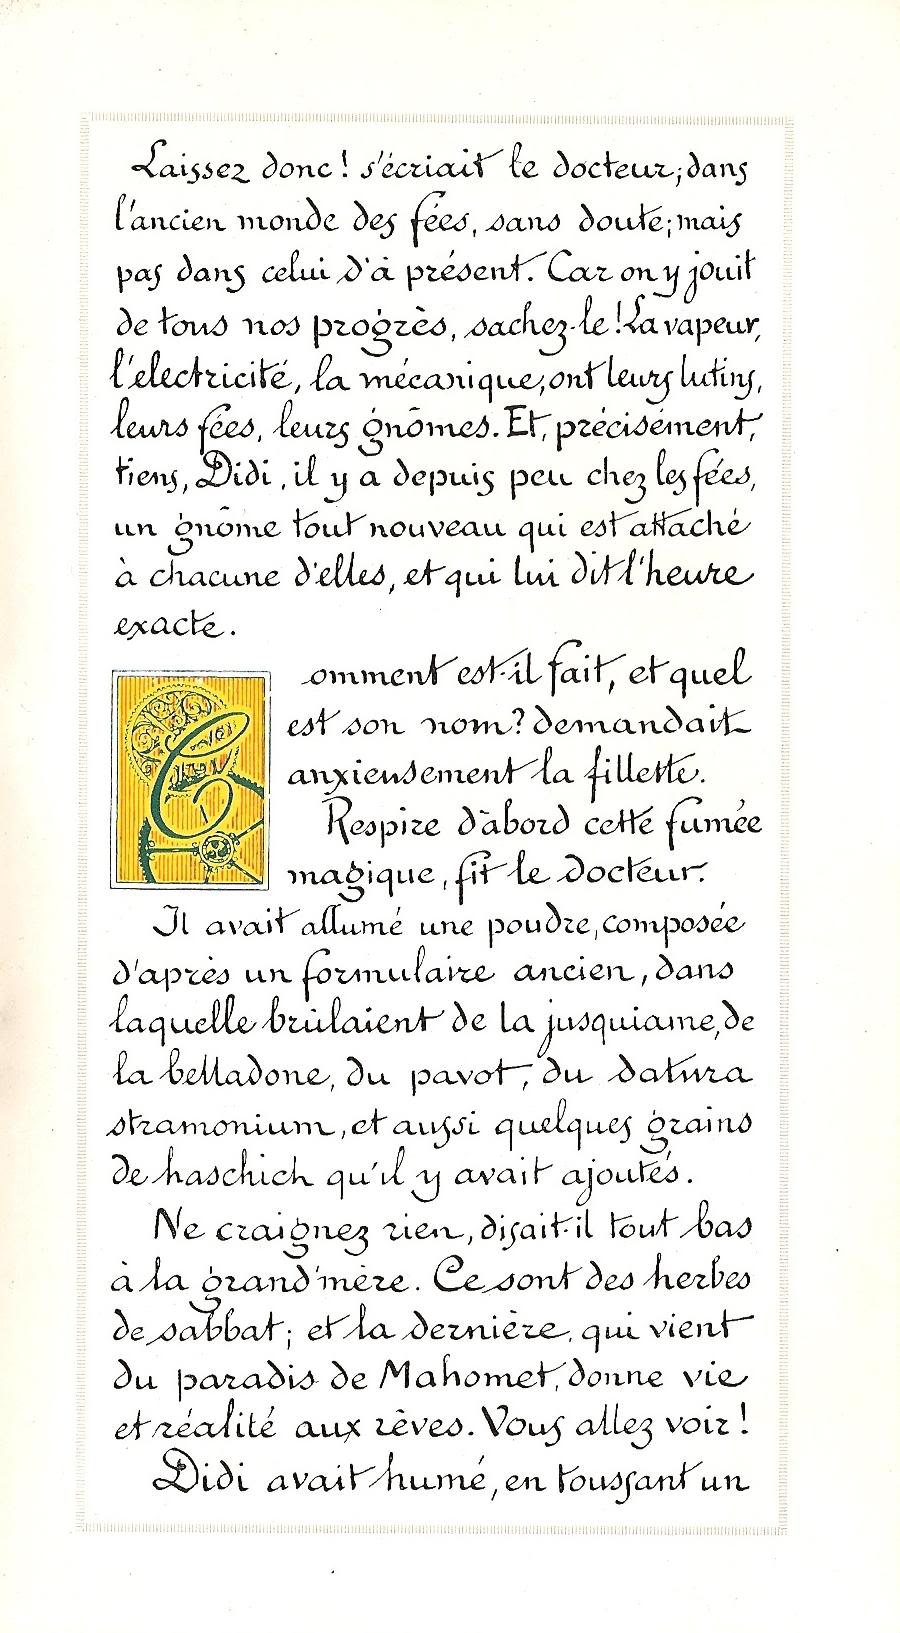 Laissez donc ! s'écriait le docteur ; dans
l'ancien monde des fées, sans doute ; mais
pas dans celui d'à présent. Car on y jouit
de tous nos progrès, sachez-le ! La vapeur,
l'électricité, la mécanique, ont leurs lutins,
leurs fées, leurs gnômes. Et, précisément,
tiens, Didi, il y a depuis peu chez les fées,
un gnôme tout nouveau qui est attaché
à chacune d'elles, et qui lui dit l'heure
exacte.
Comment est-il fait, et quel
est son nom ? demandait
anxieusement la fillette.
Respire d'abord cette fumée
magique, fit le docteur.
Il avait allumé une poudre, composée
d'après un formulaire ancien, dans
laquelle brûlaient de la jusquiame, de
la belladone, du pavot, du datura
stramonium, et aussi quelques grains
de haschich qu'il y avait ajoutés.
Ne craignez rien, disait-il tout bas
à la grand'mère. Ce sont des herbes
de sabbat ; et la dernière, qui vient
du paradis de Mahomet, donne vie
et réalité aux rêves. Vous allez voir !
Didi avait humé, en toussant un